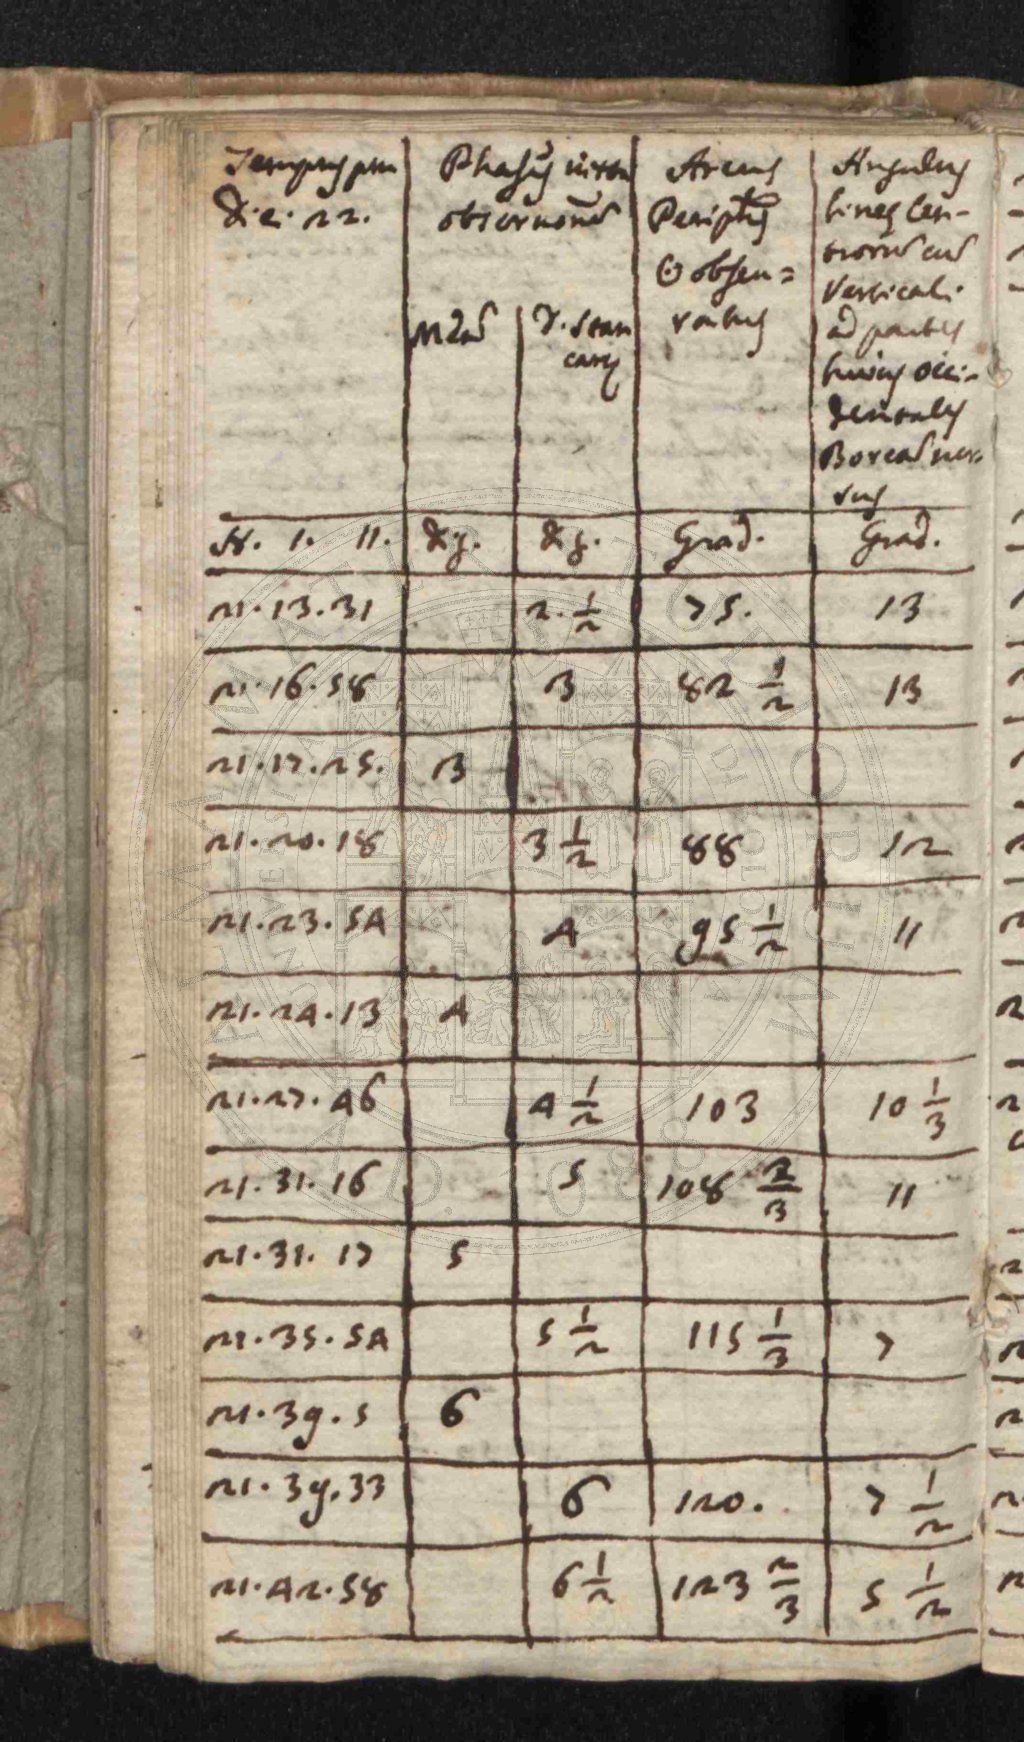 Die. 22.
Phasis
observationũ
Arcus
Periph
☉ obsen=
vatus
Angulus
lineę Cen-
trorũ cũ
Verticali
ad partes
huius occi-
dentales
Boreã ver=
sus
H. I. II. | dig. | dig. | Grad. | Grad.
21.13.31 | | 2.1/2 | 75. | 13
21.16.58 | | 3 | 82 1/2 | 13
21.17.25. | 3
21.20.18 | | 3 1/2 | 88 | 12
21.23.54 | | 4 | 95 1/2 | 11
21.24.13 | 4
21.27.46 | | 4 1/2 | 103 | 10 1/3
21.31.16 | | 5 | 108 2/3 | 11
21.31.17 | 5
21.35.54 | | 5 1/2 | 115 1/3 | 7
21.39.5 | 6
21.39.33 | | 6 | 120. | 7 1/2
21.42.58 | | 6 1/2 | 123 2/3 | 5 1/2